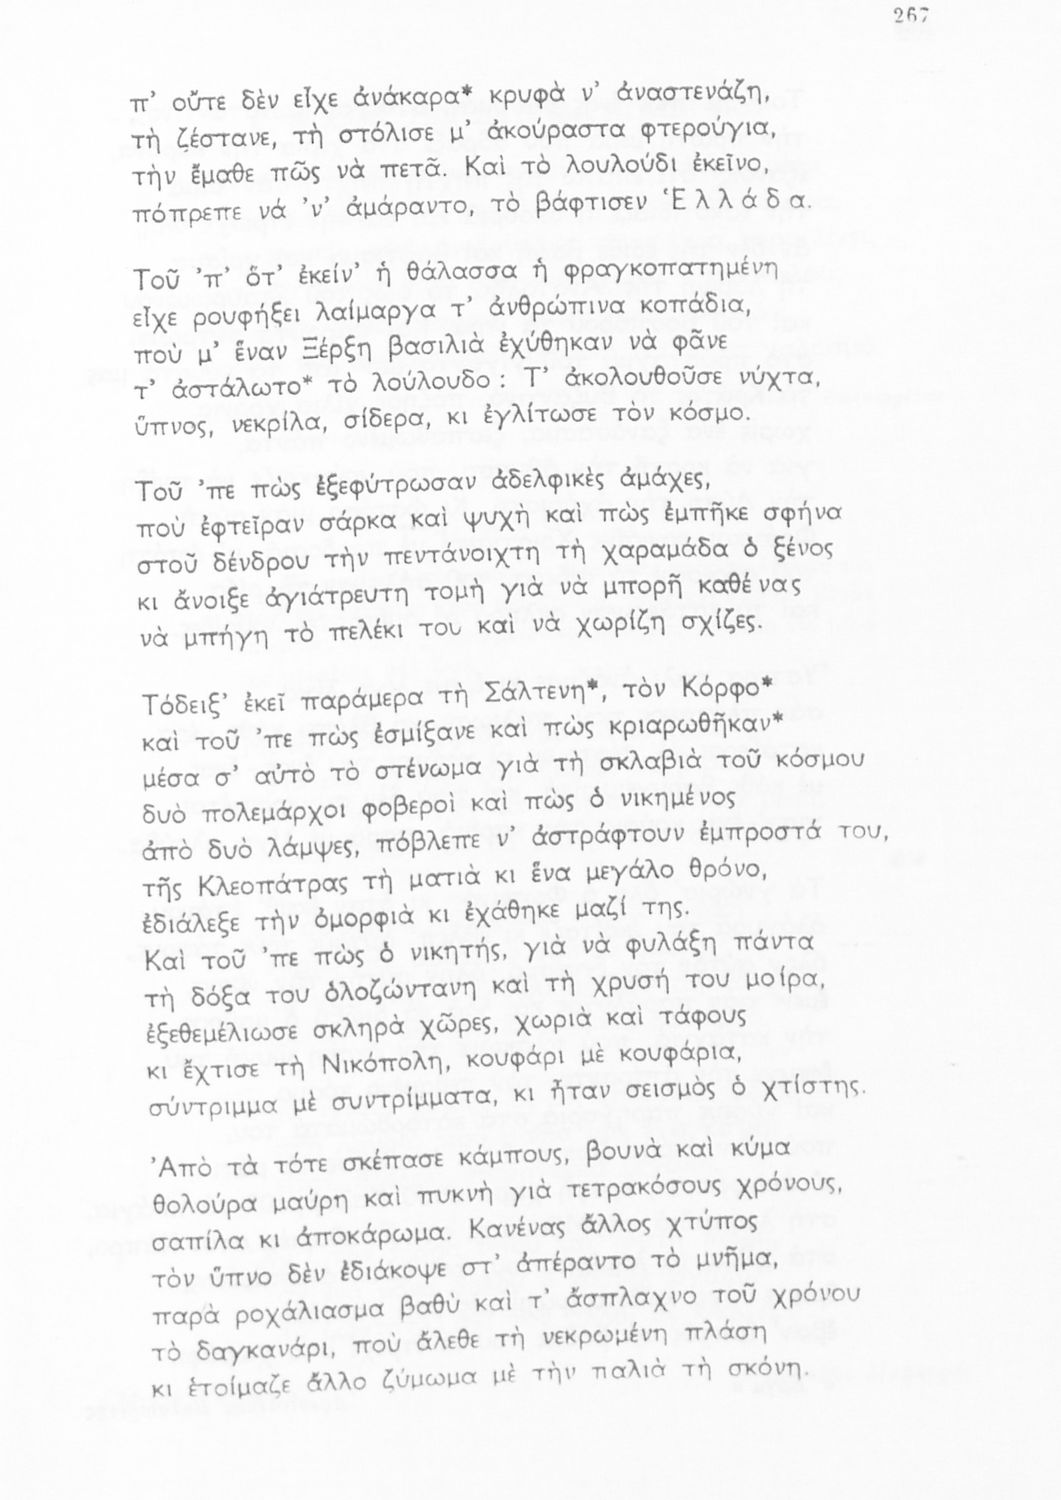 267
π' οὔτε δὲν εἶχε ἀνάκαρα* κρυφὰ ν' ἀναστενάζη,
τὴ ζέστανε, τὴ στόλισε μ' ἀκούραστα φτερούγια,
τὴν ἔμαθε πῶς νὰ πετᾶ. Καὶ τὸ λουλούδι ἐκεῖνο,
πόπρεπε νά 'ν' ἀμάραντο, τὸ βάφτισεν Ἑλλάδα.
Τοῦ 'π' ὅτ' ἐκείν' ἡ θάλασσα ἡ φραγκοπατημένη
εἶχε ρουφήξει λαίμαργα τ' ἀνθρώπινα κοπάδια,
ποὺ μ' ἕναν Ξέρξη βασιλιὰ ἐχύθηκαν νὰ φᾶνε
τ' ἀστάλωτο* τὸ λούλουδο : Τ' ἀκολουθοῦσε νύχτα,
ὕπνος, νεκρίλα, σίδερα, κι ἐγλίτωσε τὸν κόσμο.
Τοῦ 'πε πὼς ἐξεφύτρωσαν ἀδελφικὲς ἀμάχες,
ποὺ ἐφτεῖραν σάρκα καὶ ψυχὴ καὶ πὼς ἐμπῆκε σφήνα
στοῦ δένδρου τὴν πεντάνοιχτη τὴ χαραμάδα ὁ ξένος
κι ἄνοιξε ἀγιάτρευτη τομὴ γιὰ νὰ μπορῆ καθένας
νὰ μπήγη τὸ πελέκι του καὶ νὰ χωρίζη σχίζες.
Τόδειξ' ἐκεῖ παράμερα τὴ Σάλτενη*, τὸν Κόρφο*
καὶ τοῦ 'πε πὼς ἐσμίξανε καὶ πὼς κριαρωθῆκαν*
μέσα σ' αὐτὸ τὸ στένωμα γιὰ τὴ σκλαβιὰ τοῦ κόσμου
δυὸ πολεμάρχοι φοβεροὶ καὶ πὼς ὁ νικημένος
ἀπὸ δυὸ λάμψες, πόβλεπε ν' ἀστράφτουν ἐμπροστά του,
τῆς Κλεοπάτρας τὴ ματιὰ κι ἕνα μεγάλο θρόνο,
ἐδιάλεξε τὴν ὀμορφιὰ κι ἐχάθηκε μαζί της.
Καὶ τοῦ 'πε πὼς ὁ νικητής, γιὰ νὰ φυλάξη πάντα
τὴ δόξα του ὁλοζώντανη καὶ τὴ χρυσή του μοίρα,
ἐξεθεμέλιωσε σκληρὰ χῶρες, χωριὰ καὶ τάφους
κι ἔχτισε τὴ Νικόπολη, κουφάρι μὲ κουφάρια,
σύντριμμα μὲ συντρίμματα, κι ἦταν σεισμὸς ὁ χτίστης.
Ἀπὸ τὰ τότε σκέπασε κάμπους, βουνὰ καὶ κύμα
θολούρα μαύρη καὶ πυκνὴ γιὰ τετρακόσους χρόνους,
σαπίλα κι ἀποκάρωμα. Κανένας ἄλλος χτύπος
τὸν ὕπνο δὲν ἐδιάκοψε στ' ἀπέραντο τὸ μνῆμα,
παρὰ ροχάλιασμα βαθὺ καὶ τ' ἄσπλαχνο τοῦ χρόνου
τὸ δαγκανάρι, ποὺ ἄλεθε τὴ νεκρωμένη πλάση
κι ἑτοίμαζε ἄλλο ζύμωμα μὲ τὴν παλιὰ τὴ σκόνη.